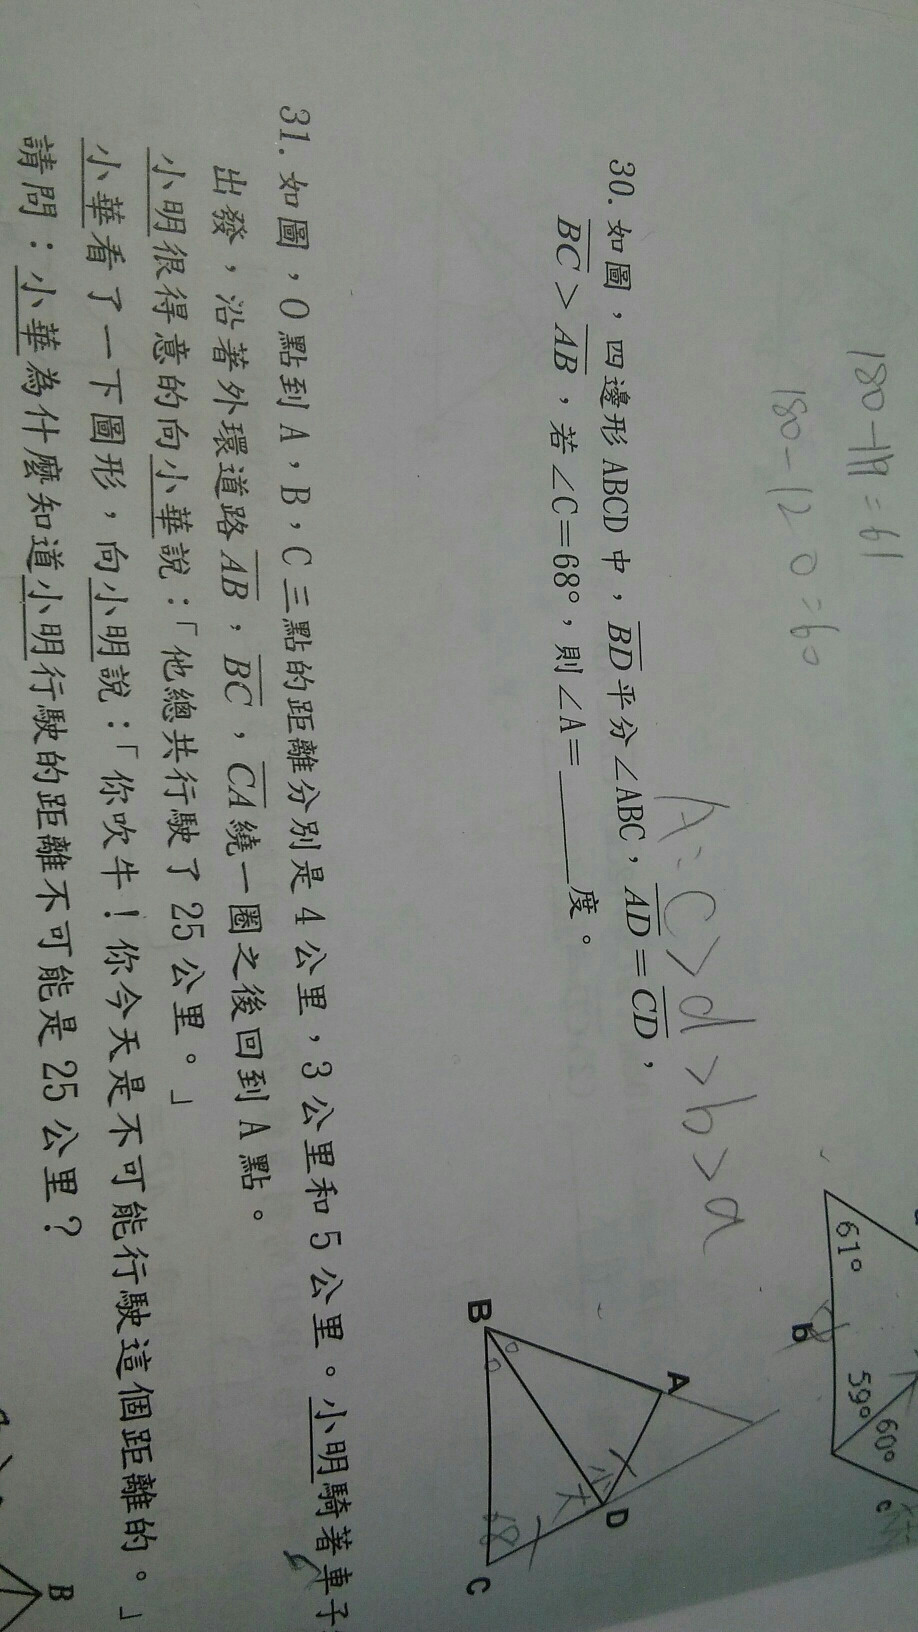 180-119=61
180-120=60
A: C>d>b>a
61°
b
59°
60°
c
30. 如圖，四邊形 ABCD 中，BD 平分∠ABC，AD=CD，
BC>AB，若∠C=68°，則∠A=______度。
A
B
D
C
小
大
68
31. 如圖，O 點到 A，B，C 三點的距離分別是 4 公里，3 公里和 5 公里。小明騎著車子
出發，沿著外環道路 AB，BC，CA 繞一圈之後回到 A 點。
小明很得意的向小華說：「他總共行駛了 25 公里。」
小華看了一下圖形，向小明說：「你吹牛！你今天是不可能行駛這個距離的。」
請問：小華為什麼知道小明行駛的距離不可能是 25 公里？
B